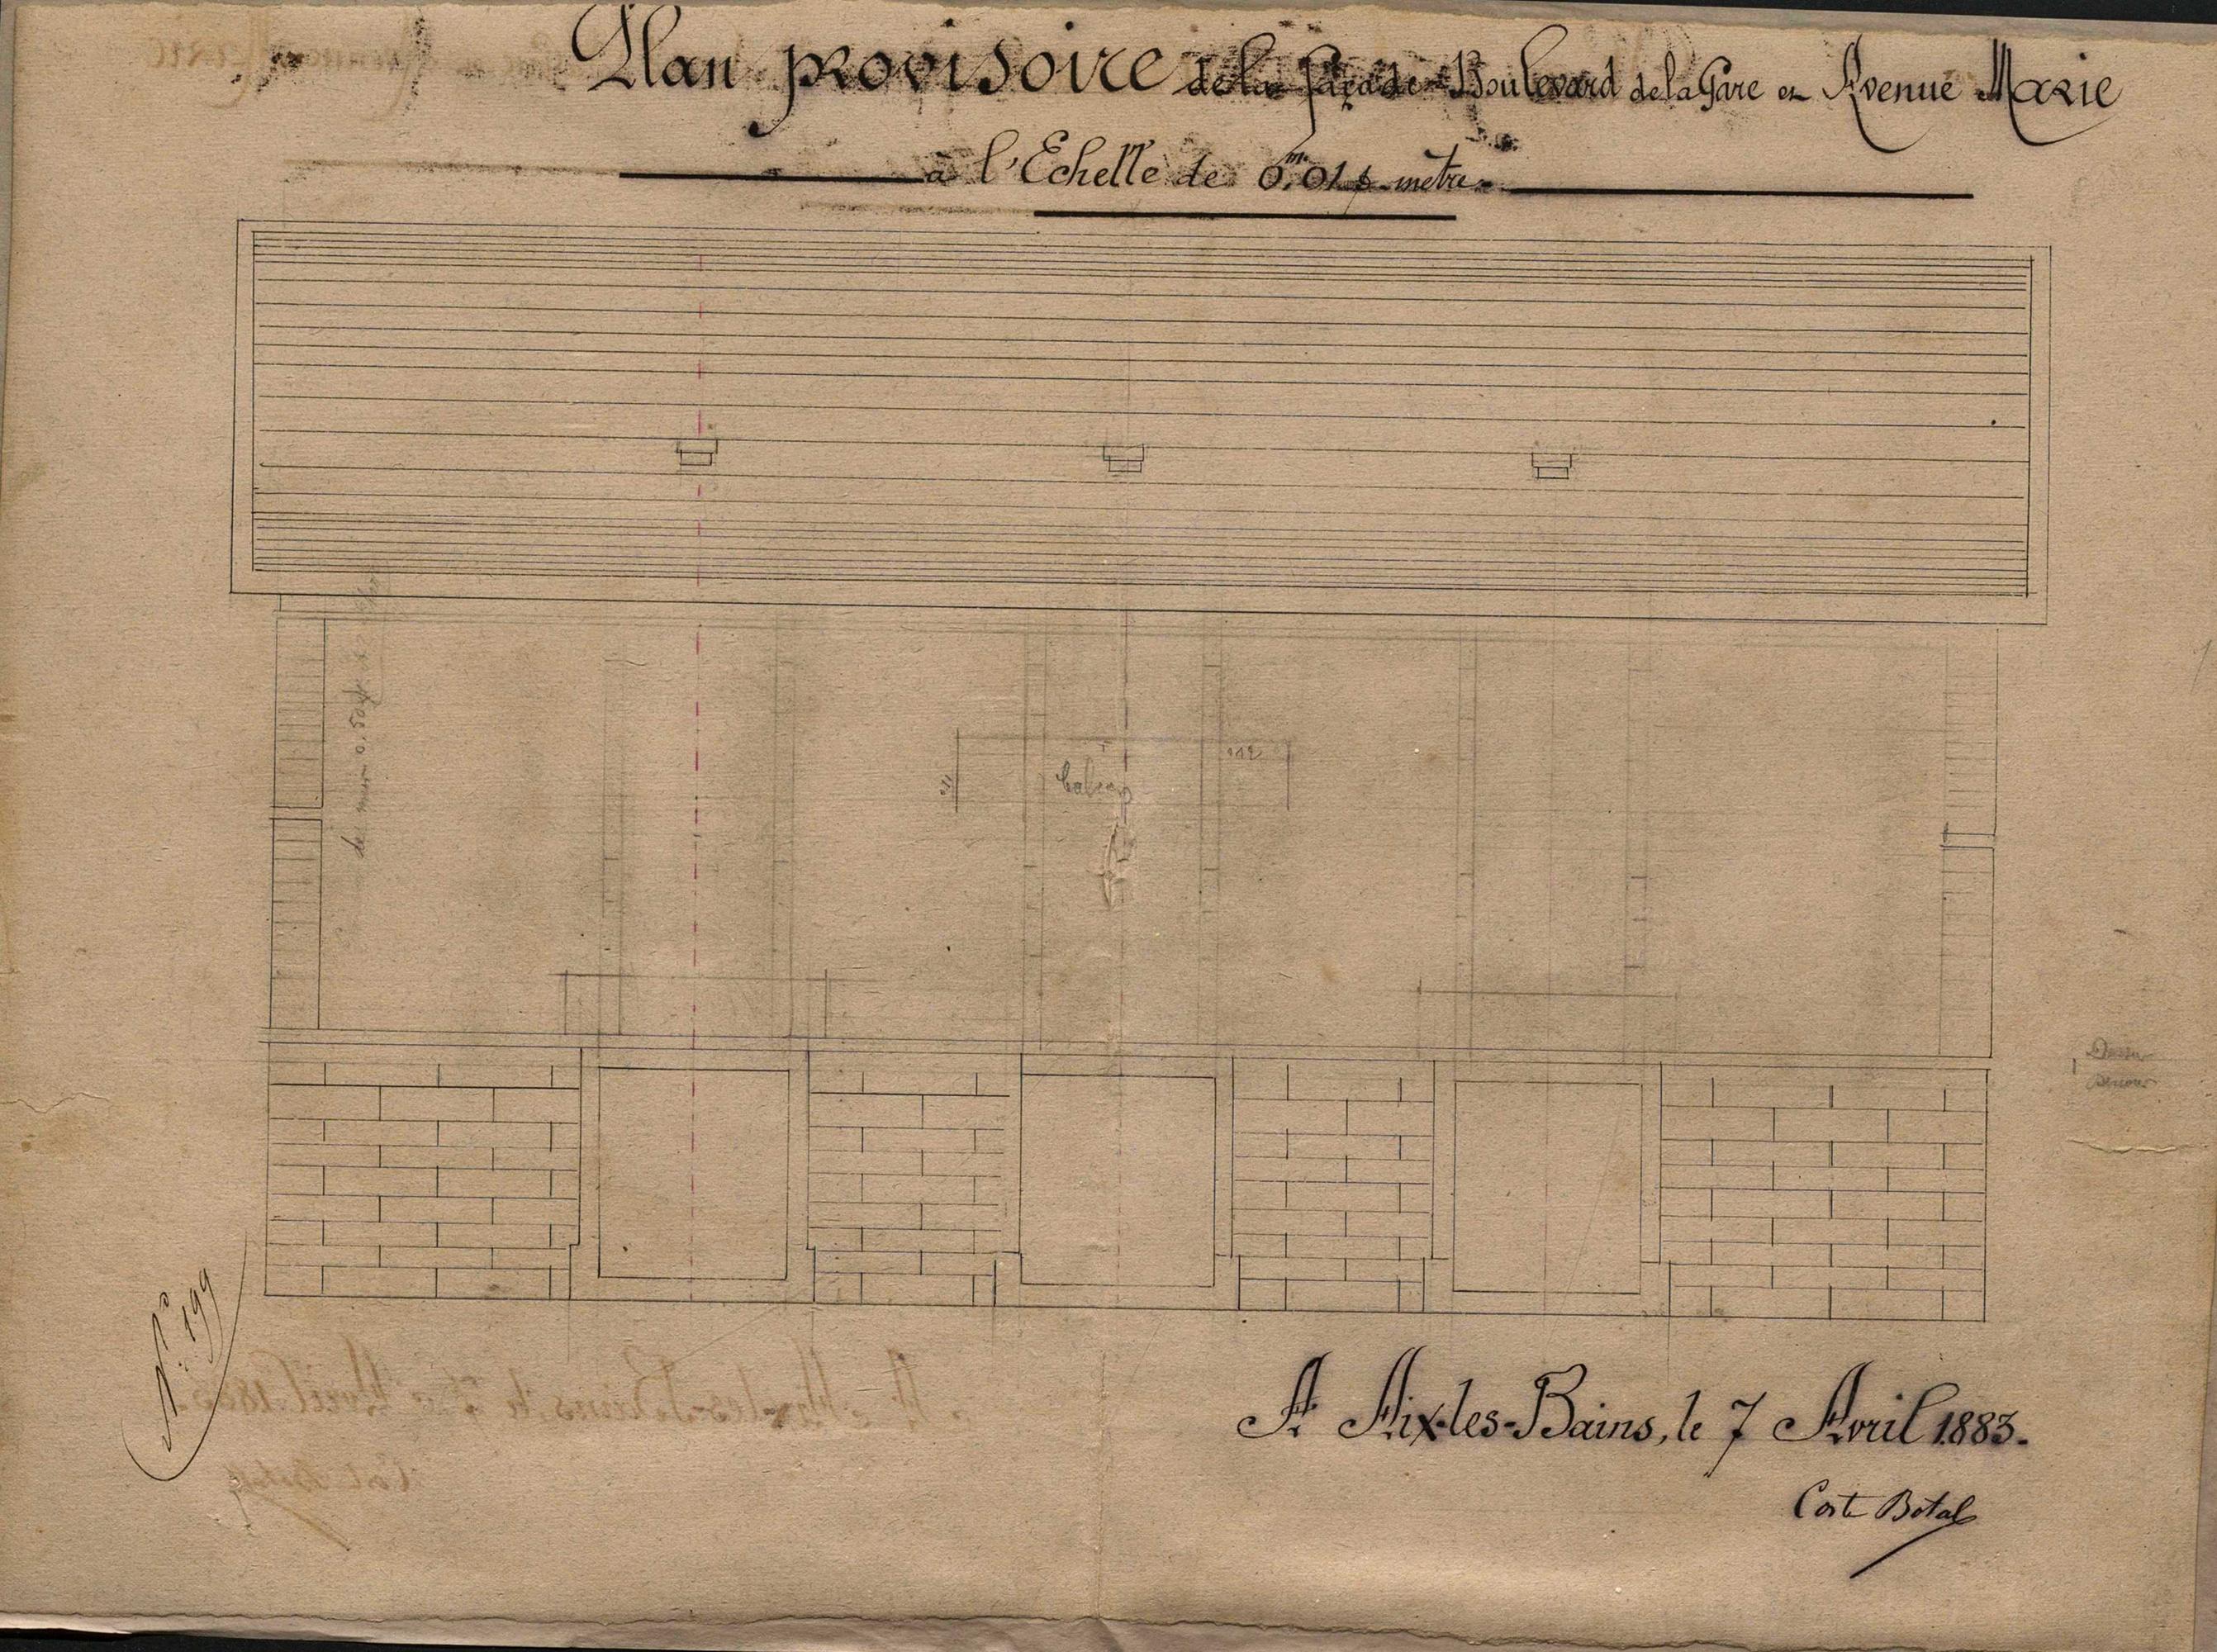 Plan provisoire de la façade Boulevard de la Gare et Avenue Marie
à l'Echelle de 0,m01 p. mètre
de mur 0,50
112
balcon
N° 199
A Aix-les-Bains, le 7 Avril 1883.
Coste Botal